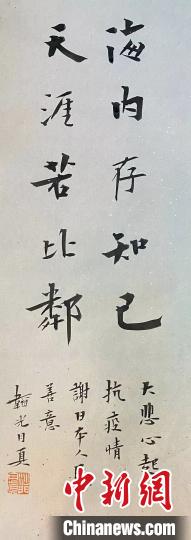 海内存知己
天涯若比鄰
大悲心起
抗疫情
謝日本人
善意
韜光月真
中新網
Chinanews.com